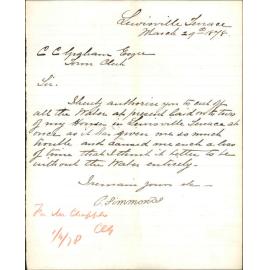 Lewisville Terrace
March 29th 1878
C C Graham Esqre
Town Clerk
Sir
I hereby authorise you to cut off
all the Water at present laid on to two
of my Houses in Lewisville Terrace at
once as it has given me so much
trouble and caused me such a loss
of time that I think it better to be
without the Water entirely.
I remain yours &c
P. Simmonds
For Mr Chapple
1/4/78